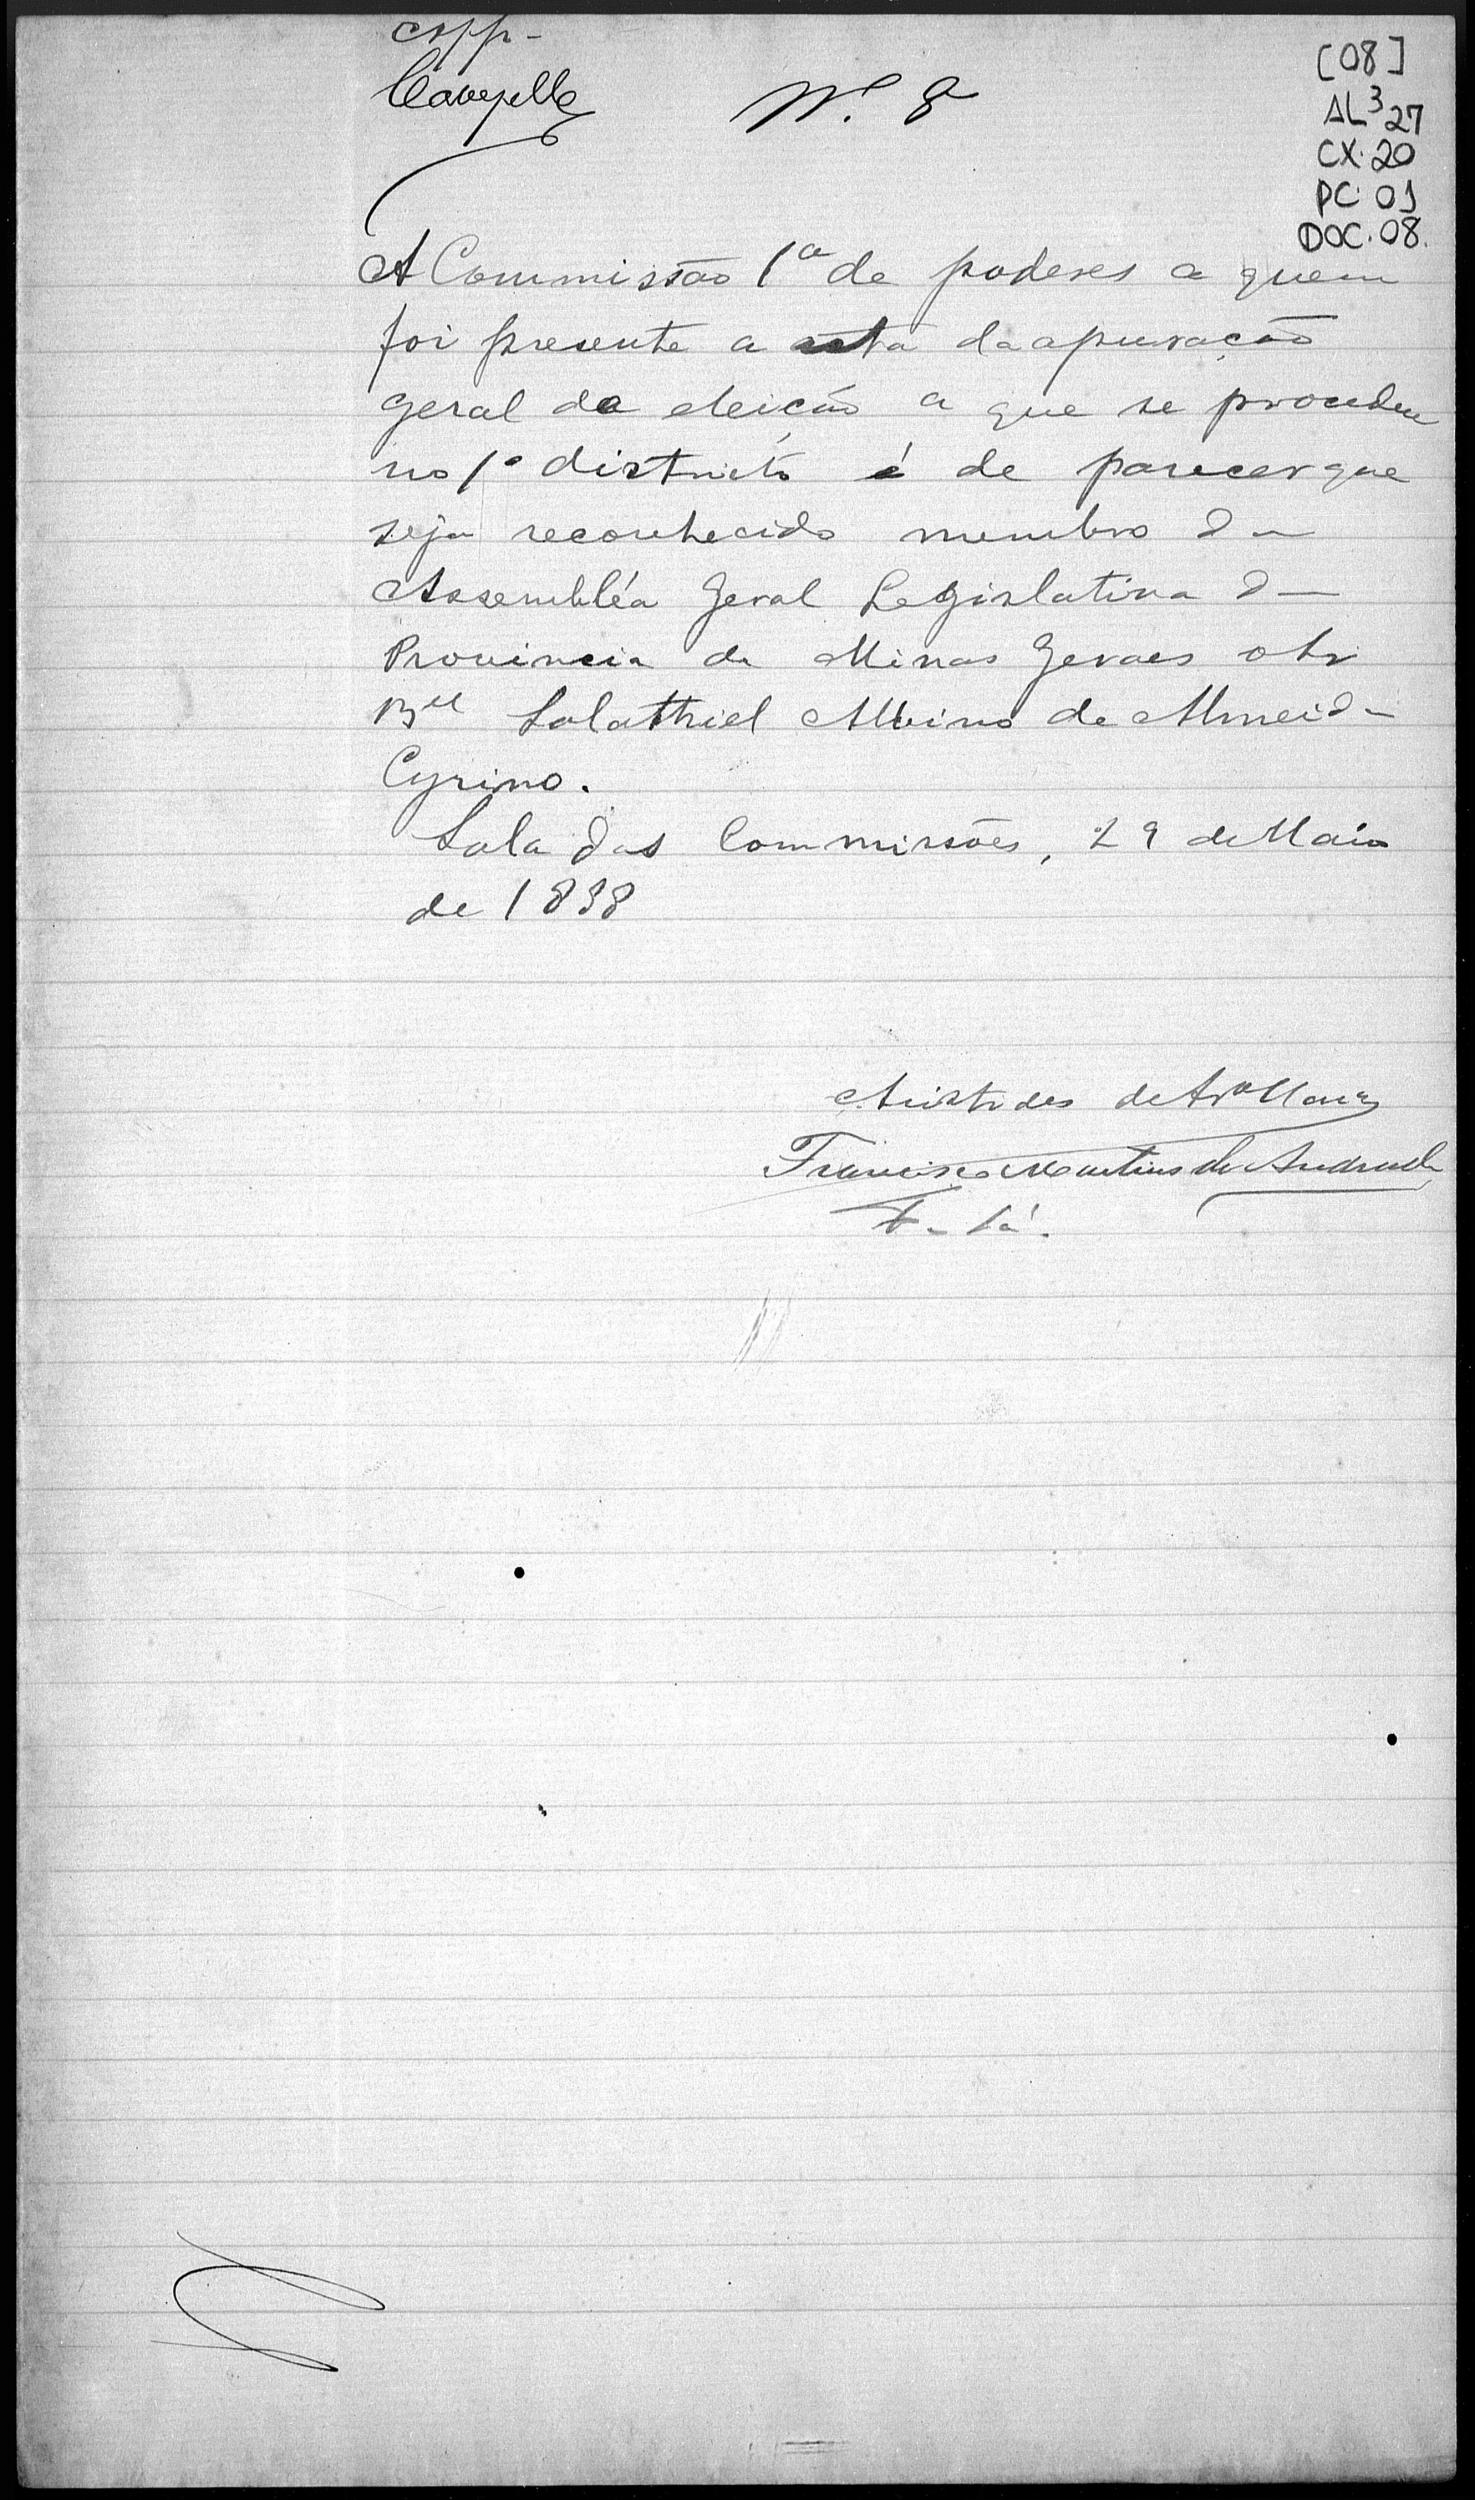 N.º 8
[08]
AL3 27
CX. 20
PC. 01
DOC. 08.
A Commissão 1a de poderes a quem
foi presente a acta da apuração
geral da eleição a que se procedeu
no 1º districto é de parecer que
seja reconhecido membro da
Assembléa Geral Legislativa da
Provincia de Minas Geraes o Sr
Bel Salathiel Albino de Almeida
Cyrino.
Sala das Commissões, 29 de Maio
de 1888
Aristides de Ar.o Maia
Francisco Martins de Andrade
F. Sá.